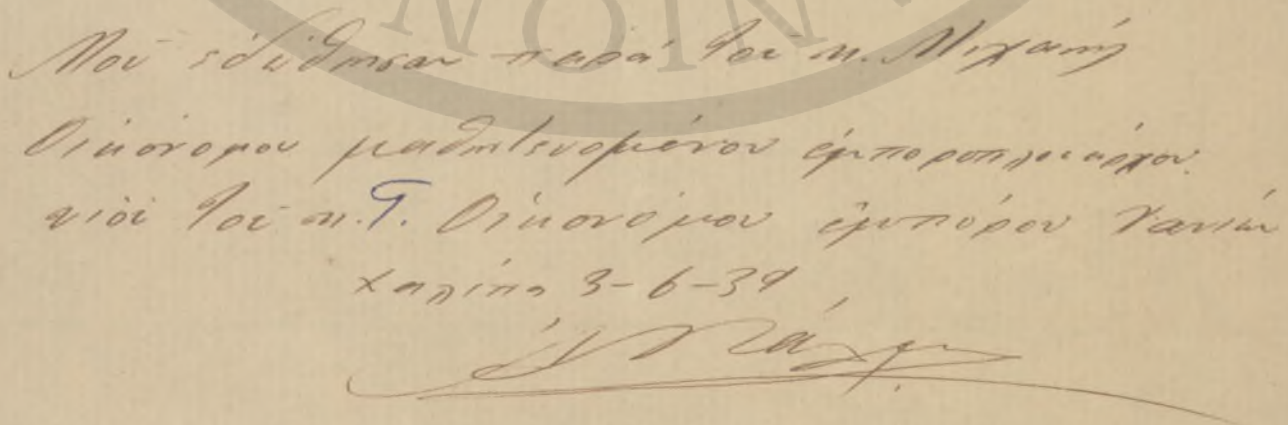 ΝΟΙΝ
Μοῦ ἐδόθησαν παρὰ τοῦ κ. Μιχαὴλ
Οἰκονόμου μαθητευομένου ἐμποροπλοιάρχου
υἱοῦ τοῦ κ. Γ. Οἰκονόμου ἐμπόρου Χανίων
Χαλέπα 3-6-39